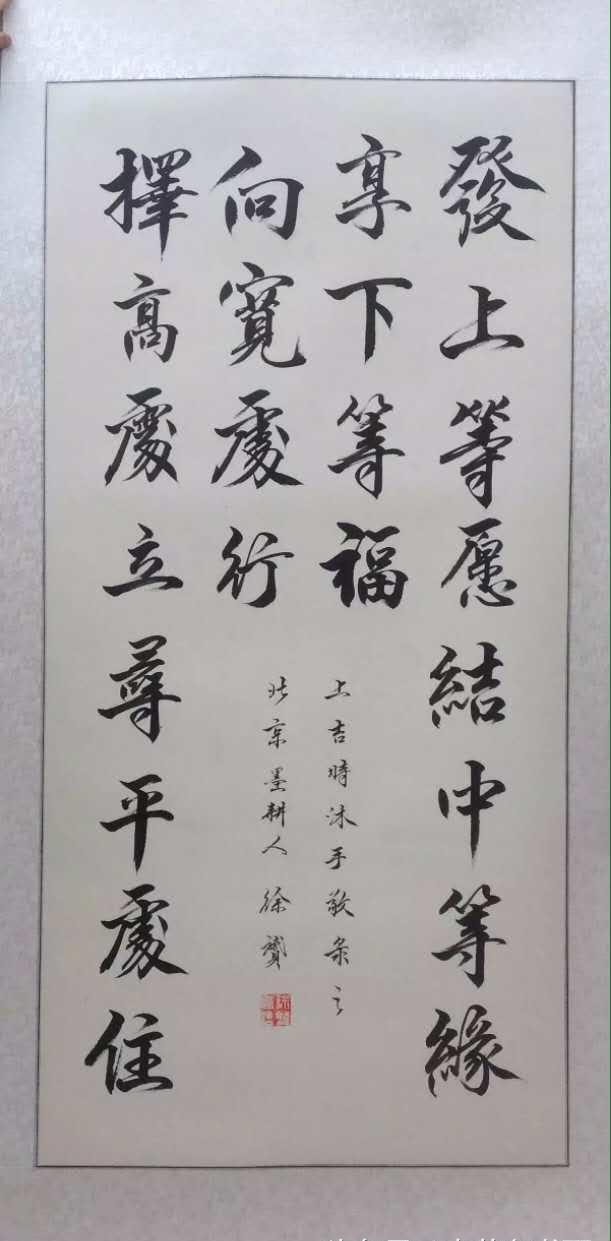 發上等愿結中等緣
享下等福
擇高處立尋平處住
向寬處行
上吉時沐手敬之
北京墨耕人徐